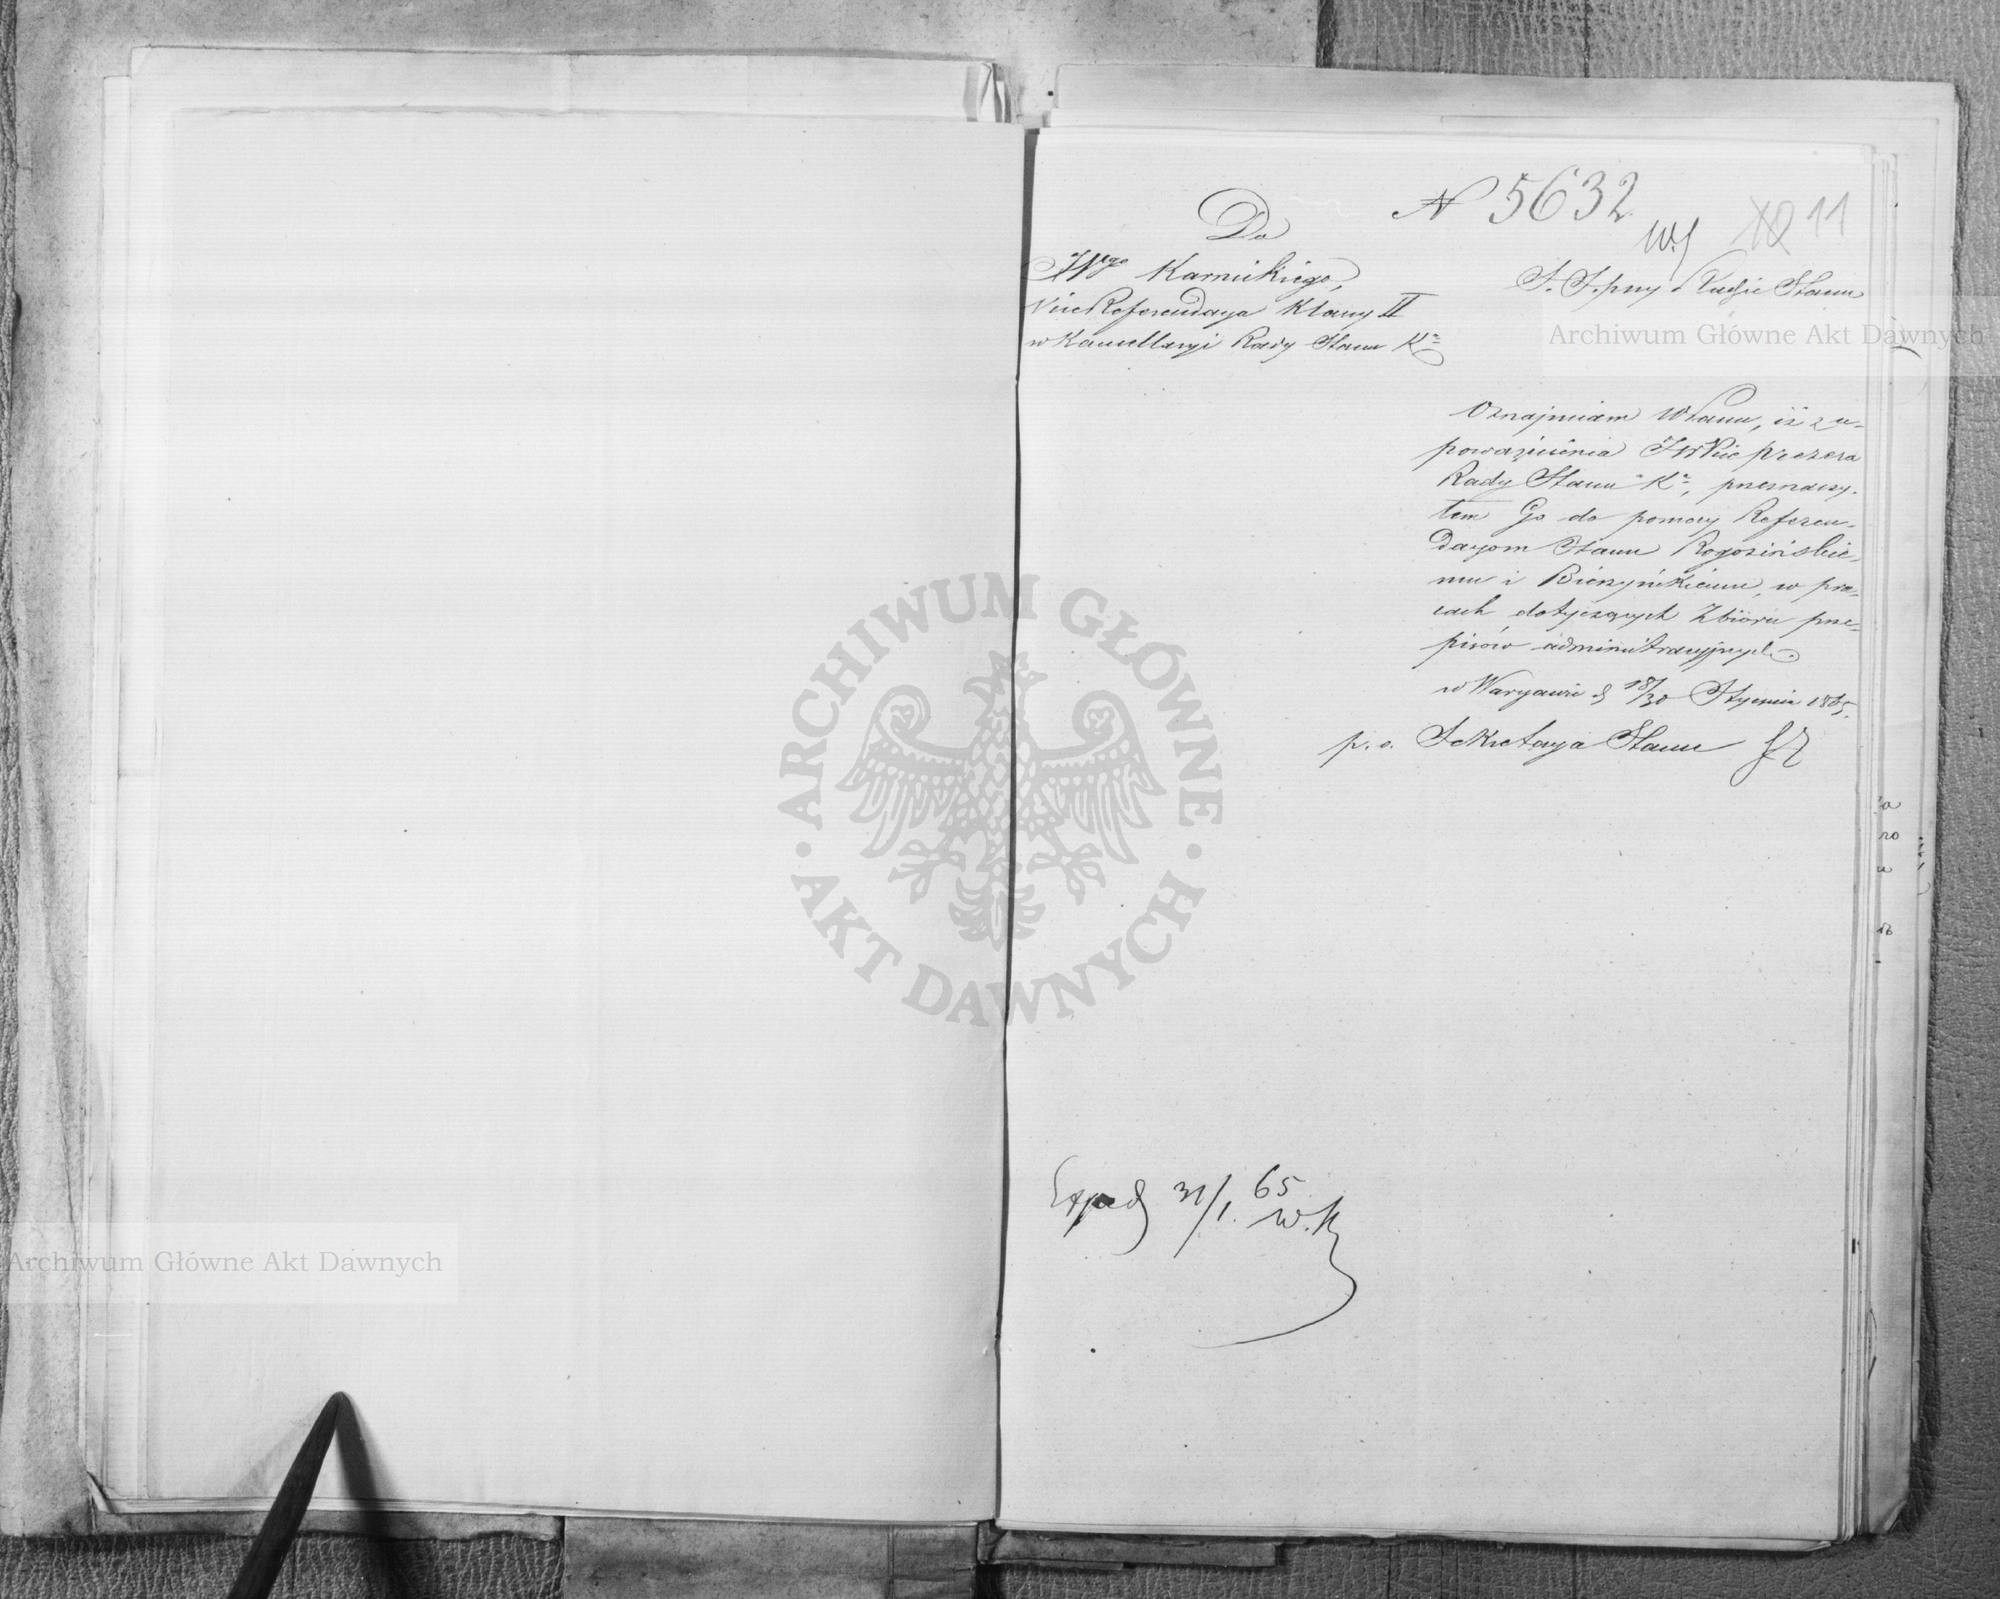 N 5632
11
Do
JWgo Karnickiego,
Vice Referendarza Klassy II
w Kancellaryi Rady Stanu Kr
S. S. przy Radzie Stanu
Archiwum Główne Akt Dawnych
Oznajmiam WPanu, iż z u-
poważnienia JW Vice prezesa
Rady Stanu Kr, przeznaczy-
łem Go do pomocy Referen-
darzom Stanu Rogozińskie-
mu i Bieczyńskiemu, w pra-
cach dotyczących Zbioru prze-
pisów administracyjnych.
w Warszawie d 18/30 Stycznia 1865.
p. o. Sekretarza Stanu
ARCHIWUM GŁÓWNE
AKT DAWNYCH
Exped 31/1. 65
W. K
Archiwum Główne Akt Dawnych